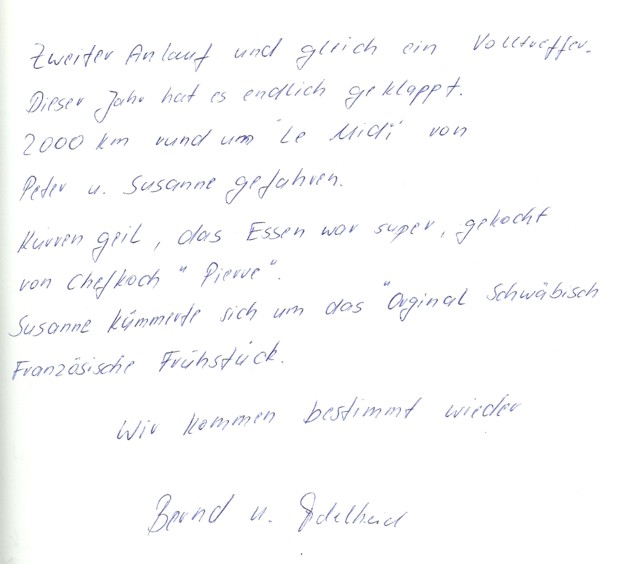 Zweiter Anlauf und gleich ein Volltreffer.
Dieser Jahr hat es endlich geklappt.
2000 km rund um "Le Midi" von
Peter u. Susanne gefahren.
Kurven geil, das Essen war super, gekocht
von Chefkoch "Pierre".
Susanne kümmerte sich um das "Orginal Schwäbisch
Französische Frühstück.
Wir kommen bestimmt wieder
Bernd u.